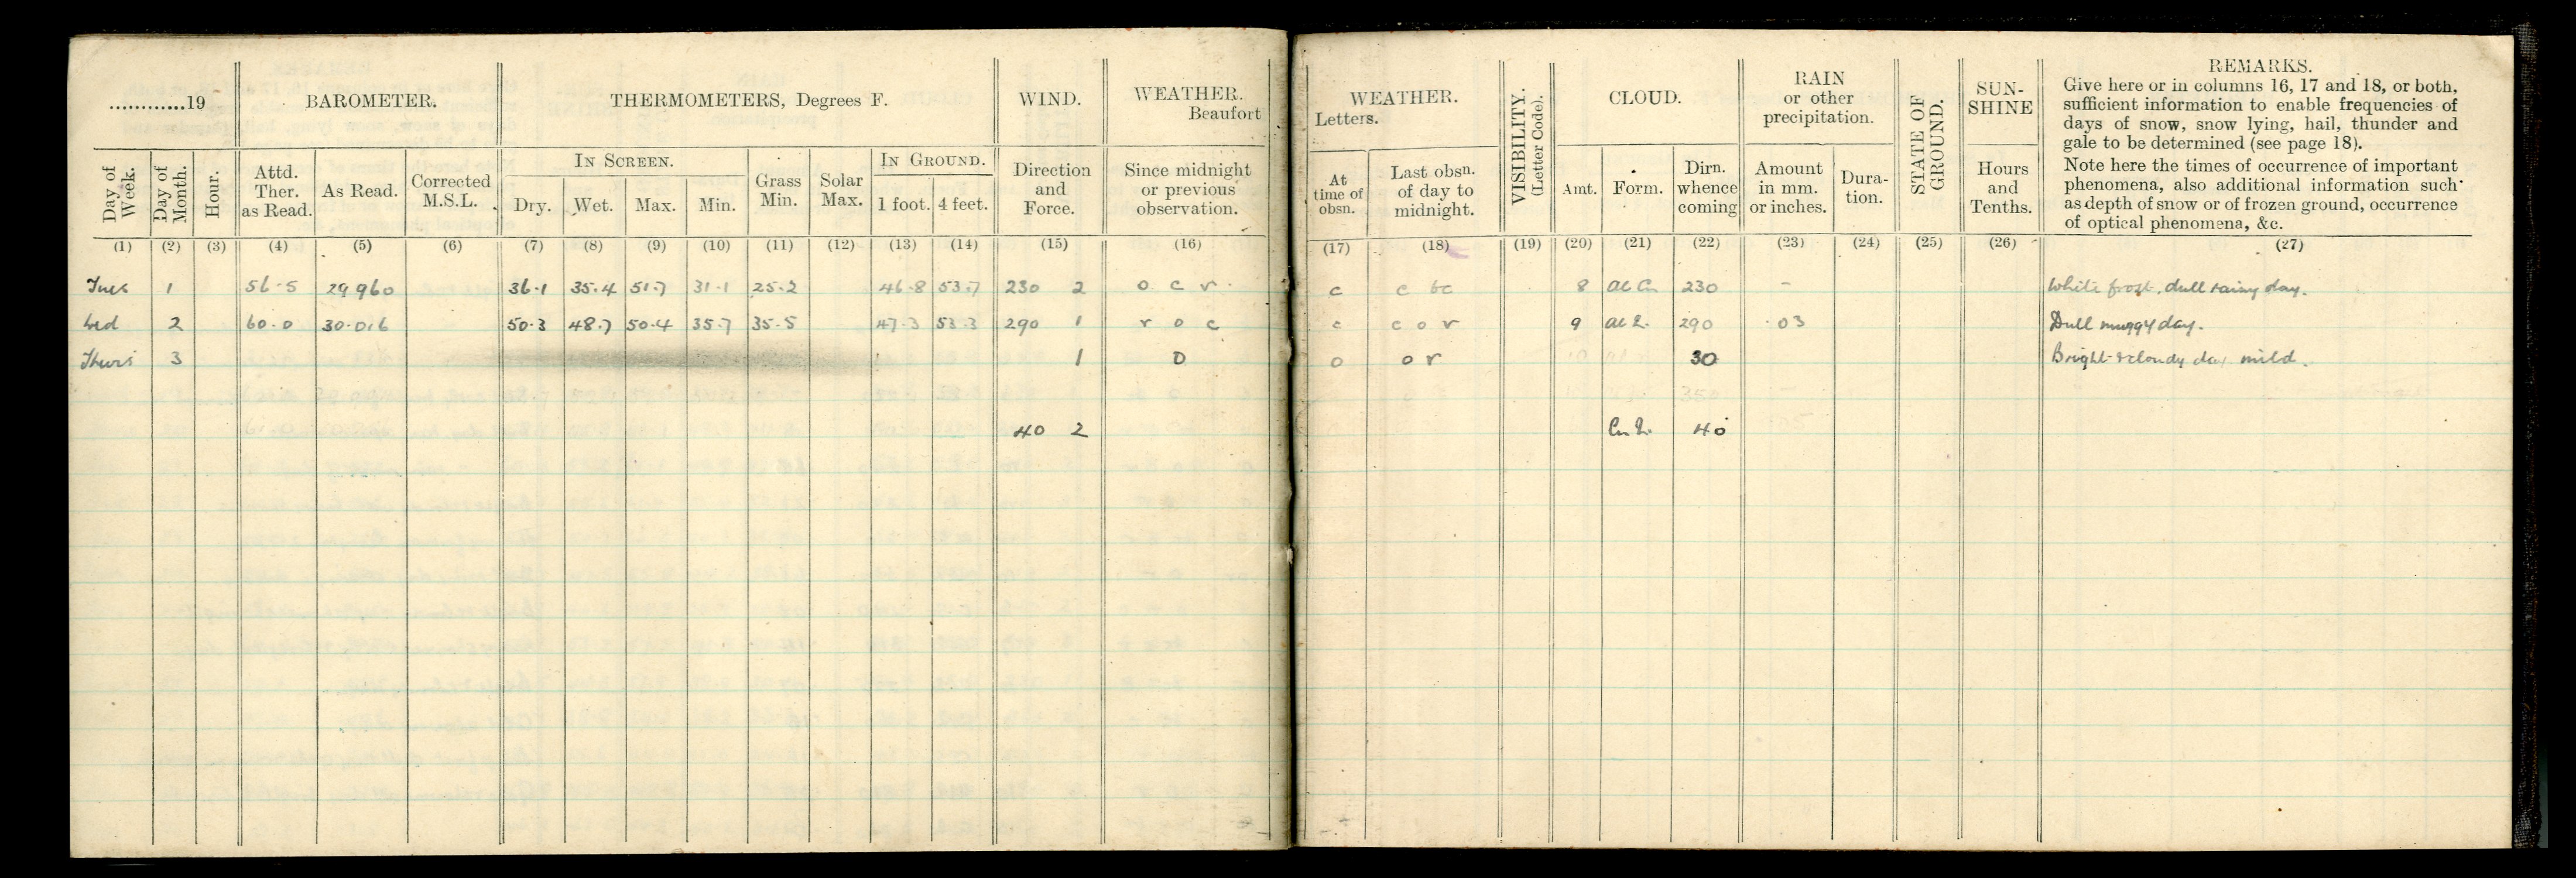 ............19 BAROMETER. THERMOMETERS, Degrees F. WIND. WEATHER. Beaufort
Day of Week. Day of Month. Hour. Attd. Ther. as Read. As Read. Corrected M.S.L. IN SCREEN. Dry. Wet. Max. Min. Grass Min. Solar Max. IN GROUND. 1 foot. 4 feet. Direction and Force. Since midnight or previous observation.
(1) (2) (3) (4) (5) (6) (7) (8) (9) (10) (11) (12) (13) (14) (15) (16)
Tues 1 56.5 29.960 36.1 35.4 51.7 31.1 25.2 46.8 53.7 230 2 o c r
Wed 2 60.0 30.016 50.3 48.7 50.4 35.7 35.5 47.3 53.3 290 1 r o c
Thurs 3 1 o
40 2
WEATHER. Letters. VISIBILITY. (Letter Code). CLOUD. RAIN or other precipitation. STATE OF GROUND. SUN-SHINE
REMARKS.
Give here or in columns 16, 17 and 18, or both,
sufficient information to enable frequencies of
days of snow, snow lying, hail, thunder and
gale to be determined (see page 18).
Note here the times of occurrence of important
phenomena, also additional information such
as depth of snow or of frozen ground, occurrence
of optical phenomena, &c.
At time of obsn. Last obsn. of day to midnight. Amt. Form. Dirn. whence coming Amount in mm. or inches. Dura-tion. Hours and Tenths.
(17) (18) (19) (20) (21) (22) (23) (24) (25) (26) (27)
c c bc 8 230 - White frost, dull rainy day.
c c o r 9 290 .03 Dull muggy day.
o o r 30 Bright & cloudy day mild.
40